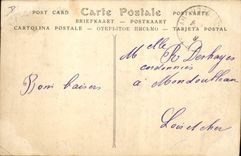 POST CARD Carte Postale POSTKARTE
BRIEFKAART POSTKAART
CARTOLINA POSTALE ОТКРЫТОЕ ПИСЬМО TARJETA POSTAL
Bons baisers
Melle R Deshayes
à Mondoubleau
Loir et cher